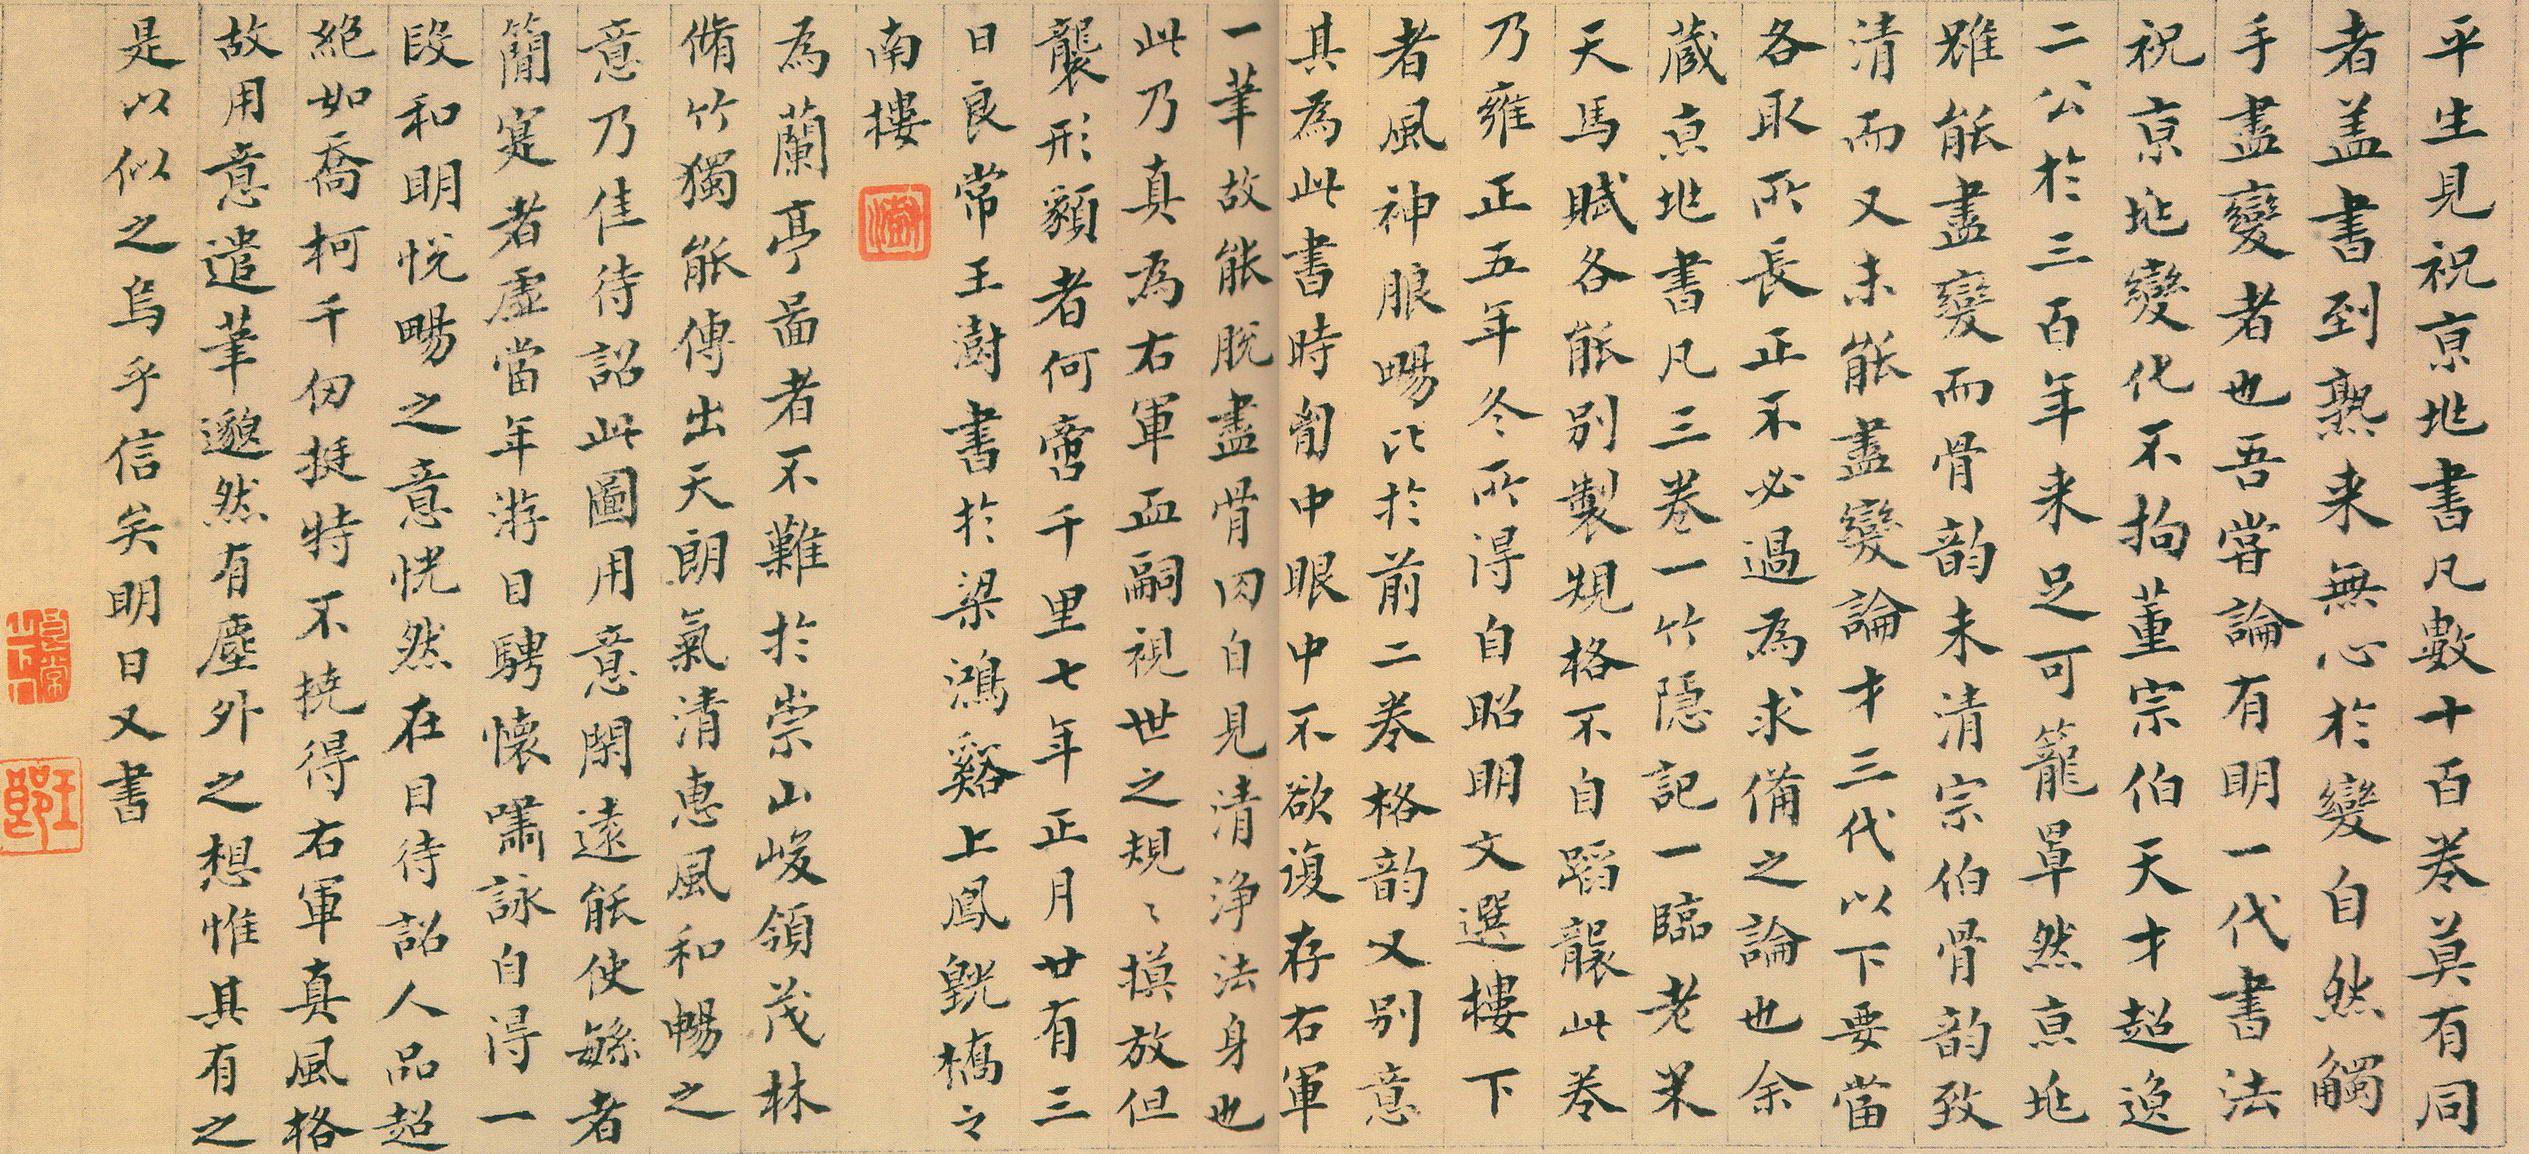 平生見祝京兆書凡數十百卷莫有同
者盖書到熟来無心於變自然觸
手盡變者也吾嘗論有明一代書法
祝京兆變化不拘董宗伯天才超逸
二公於三百年来足可籠罩然京兆
雖能盡變而骨韵未清宗伯骨韵致
清而又未能盡變論才三代以下要當
各取所長正不必過為求備之論也余
蔵京兆書凡三卷一竹隱記一臨老米
天馬賦各能别製規格不自蹈襲此卷
乃雍正五年冬所得自昭明文選樓下
者風神朗暢比於前二卷格韵又别意
其為此書時胷中眼中不欲復存右軍
一筆故能脫盡骨肉自見清浄法身也
此乃真為右軍血嗣視世之規〻摸放但
襲形貌者何啻千里七年正月廿有三
日良常王澍書於梁鴻谿上鳳凰橋之
南樓
為蘭亭啚者不難於崇山峻領茂林
脩竹獨能傳出天朗氣清惠風和暢之
意乃佳待詔此圖用意閑遠能使繇者
簡寔者虛當年游目騁懷嘯詠自得一
段和明悅暢之意恍然在目待詔人品超
絶如喬柯千仞挺特不撓得右軍真風格
故用意遣筆邈然有塵外之想惟其有之
是以似之烏乎信矣明日又書
澍